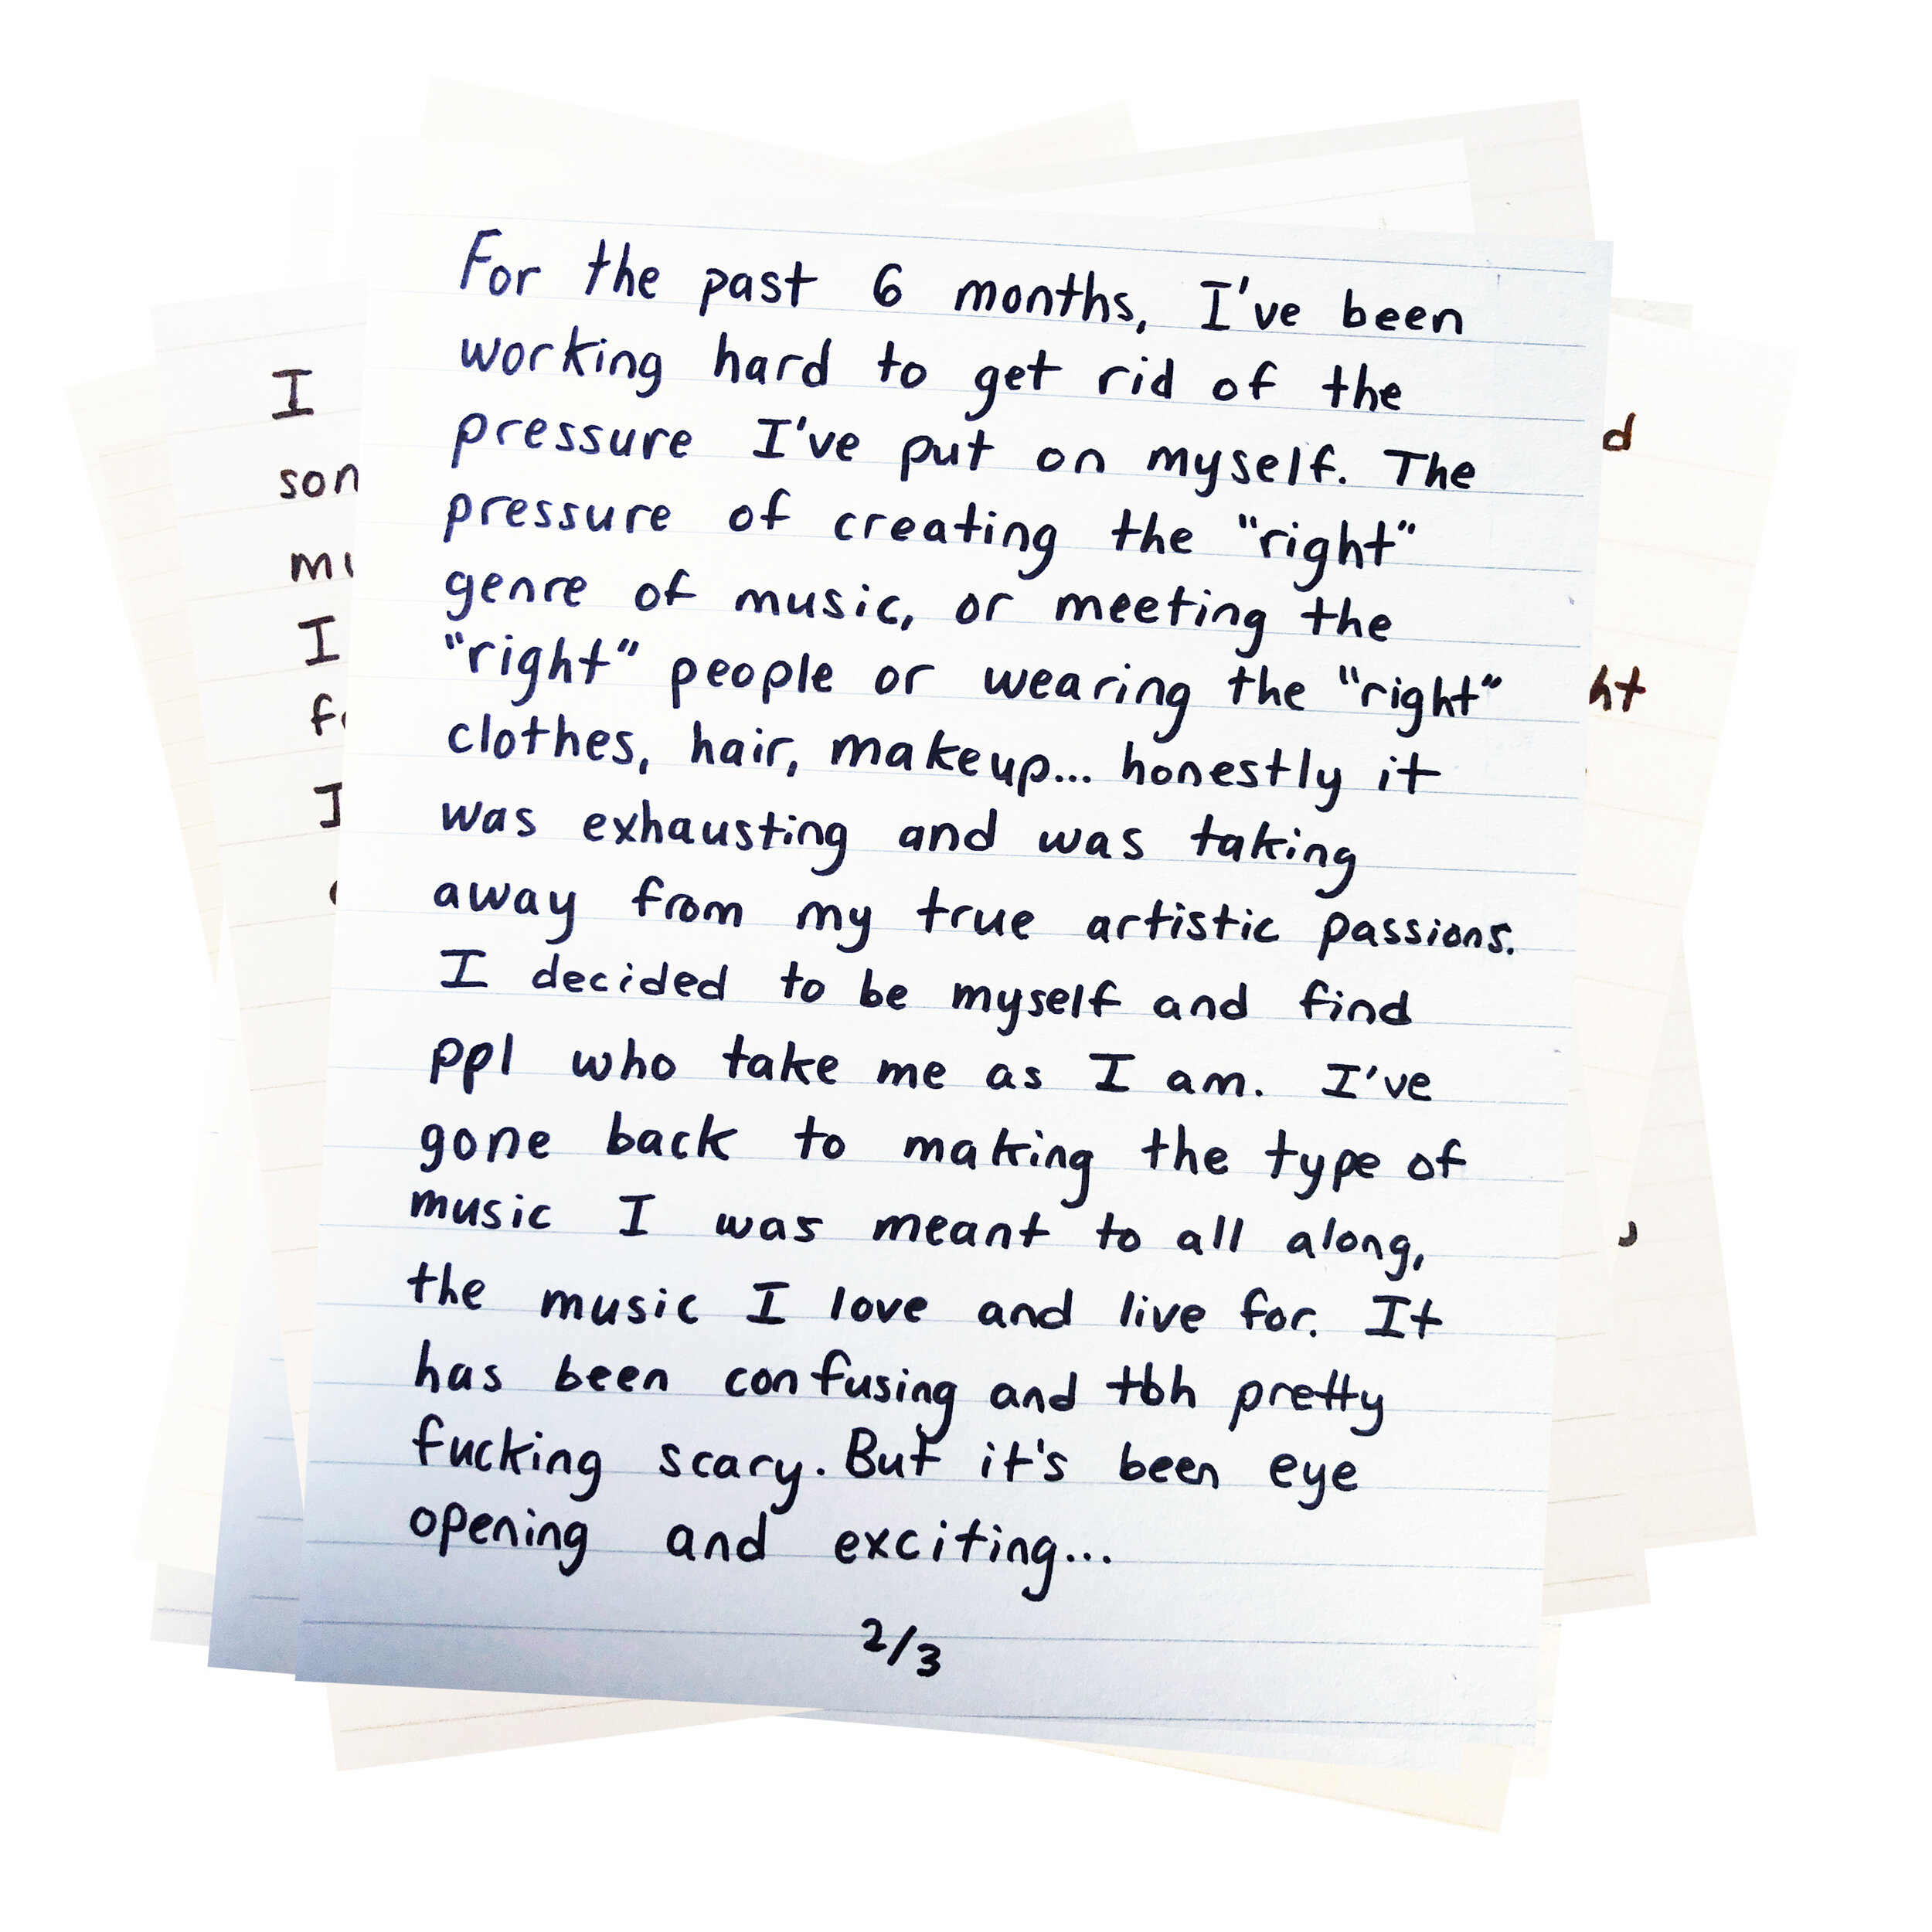 For the past 6 months, I've been
working hard to get rid of the
pressure I've put on myself. The
pressure of creating the "right"
genre of music, or meeting the
"right" people or wearing the "right"
clothes, hair, makeup... honestly it
was exhausting and was taking
away from my true artistic passions.
I decided to be myself and find
ppl who take me as I am. I've
gone back to making the type of
music I was meant to all along,
the music I love and live for. It
has been confusing and tbh pretty
fucking scary. But it's been eye
opening and exciting...
2/3
I
I